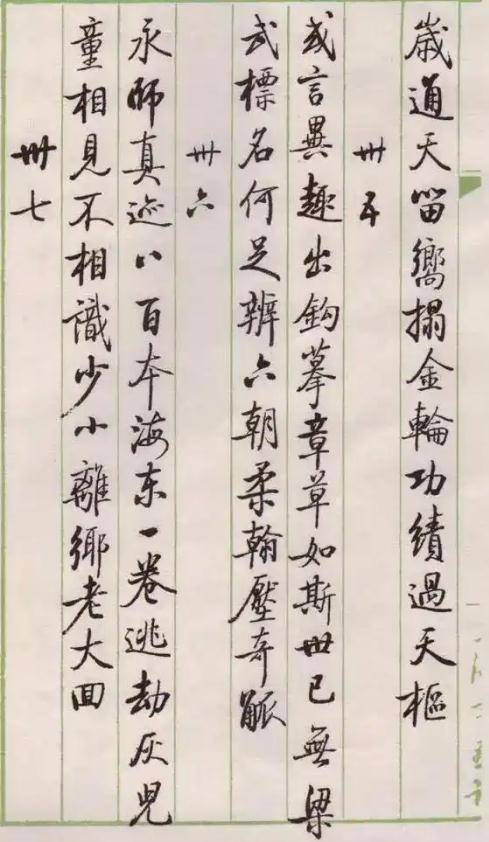 歲通天留嚮搨金輪功績過天樞
卅五
或言異趣出鈎摹章草如斯世已無梁
武標名何足辨六朝柔翰壓奇觚
卅六
永師真迹八百本海東一卷逃劫灰兒
童相見不相識少小離鄉老大囬
卅七